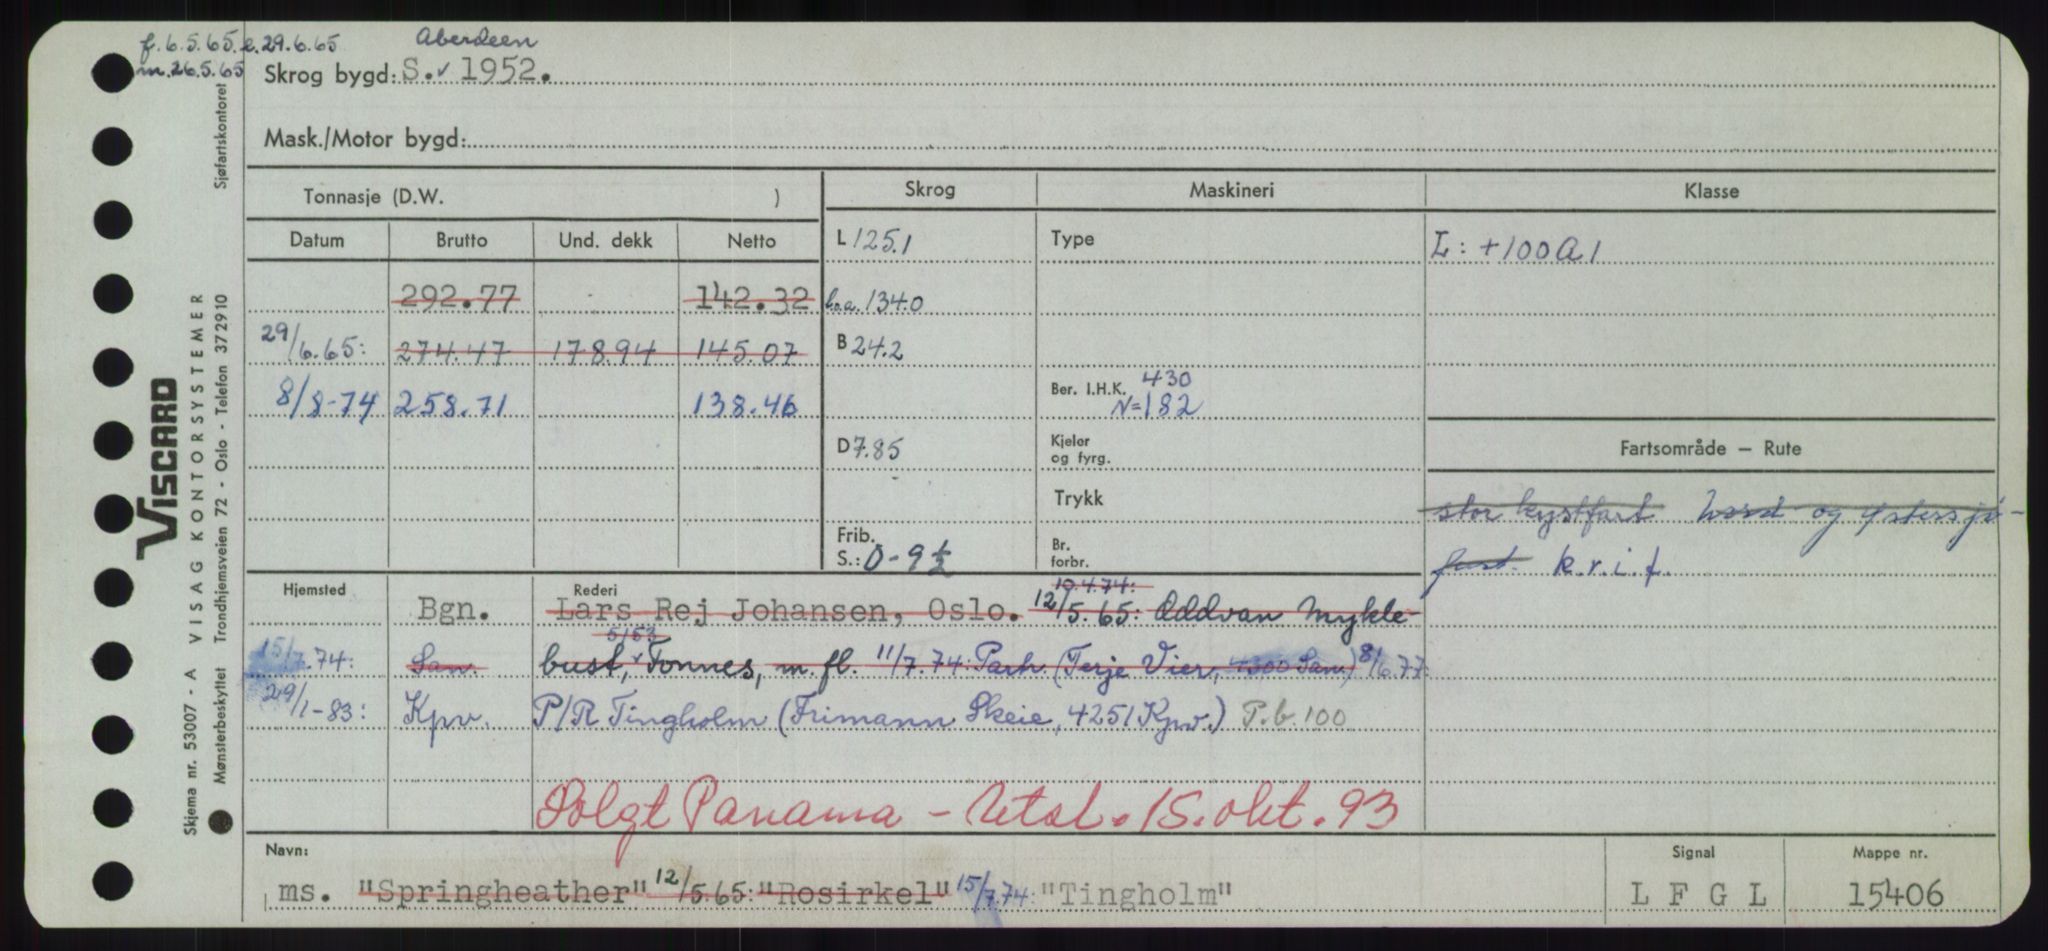 f. 6.5.65. e. 29.6.65 Aberdeen
m. 26.5.65 Skrog bygd: S. v 1952.
Mask./Motor bygd:
Tonnasje (D.W. ) Skrog Maskineri Klasse
Datum Brutto Und. dekk Netto L 125.1 Type L: +100A1
292.77 142.32 l.o.a. 134.0
29/6.65: 274.47 178.94 145.07 B 24.2
8/8-74 258.71 138.46 Ber. I.H.K. 430
N=182
D 7.85 Kjeler og fyrg. Fartsområde – Rute
Trykk stor kystfart Nord og Østersjø-
Frib. S.: 0-9½ Br. forbr. fart. k.r.i.f.
Hjemsted Bgn. Rederi Lars Rej Johansen, Oslo. 10.4.74: 12/5.65: Oddvan Mykle-
5153
15/7.74: San bust, v Tonnes, m.fl. 11/7.74: Parh. (Terje Vier, 4300 San.) 8/6.77
29/1-83: Kpv. P/R Tingholm (Frimann Skeie, 4251 Kpv.) P.b. 100
Solgt Panama – Utsl. 15. okt. 93
Navn: Signal Mappe nr.
ms. "Springheather" 12/5.65: "Rosirkel" 15/7.74: "Tingholm" L F G L 15406
VISCARD
VISAG KONTORSYSTEMER
Sjøfartskontoret
Skjema nr. 53007 - A
Mønsterbeskyttet Trondhjemsveien 72 - Oslo - Telefon 372910